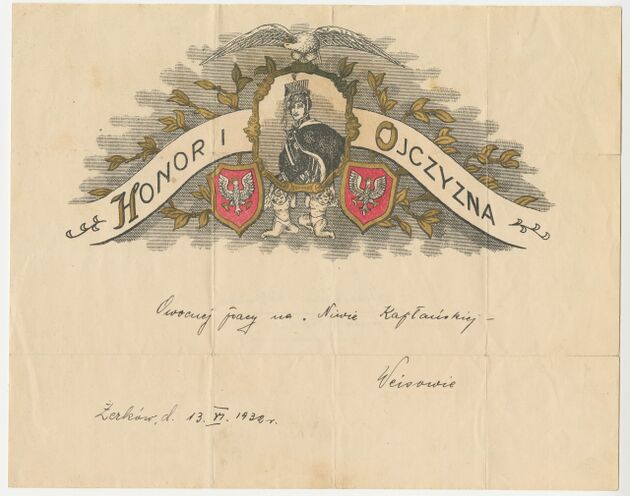 HONOR I OJCZYZNA
Owocnej pracy na „Niwie Kapłańskiej –
Weisowie
Żerków, d. 13. VI. 1932 r.